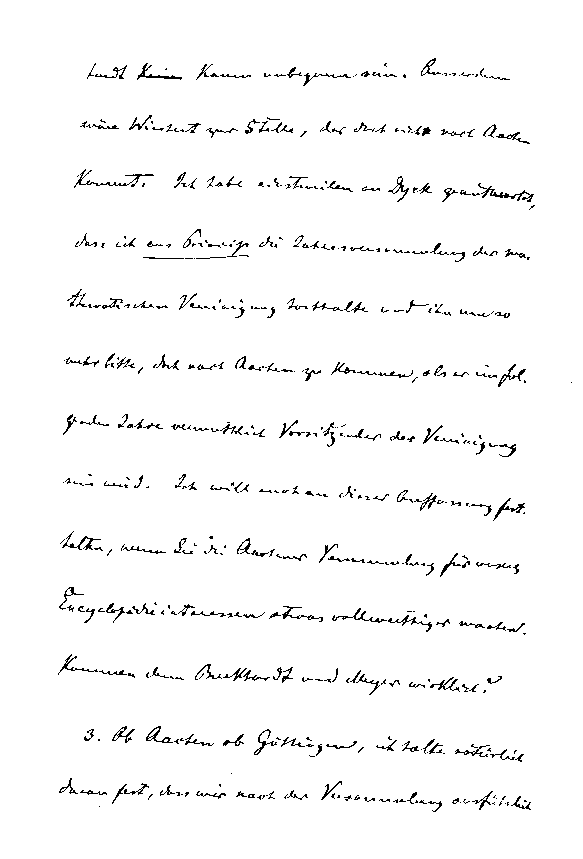 hardt kaum unbequem sein. Ausserdem
wäre Wiechert zur Stelle, der doch nicht nach Aachen
kommt. Ich habe einstweilen an Dyck geantwortet,
dass ich aus Princip die Jahresversammlung der ma-
thematischen Vereinigung hochhalte und ihn um so
mehr bitte, doch nach Aachen zu kommen, als er im fol-
genden Jahre vermuthlich Vorsitzender der Vereinigung
sein wird. Ich will auch an dieser Auffassung fest-
halten, wenn Sie die Aachener Versammlung für unsere
Encyclopädieinteressen etwas vollwerthiger machen.
Kommen denn Burkhardt und Meyer wirklich?
3. Ob Aachen ob Göttingen, ich halte natürlich
daran fest, dass wir nach der Versammlung ausführlich